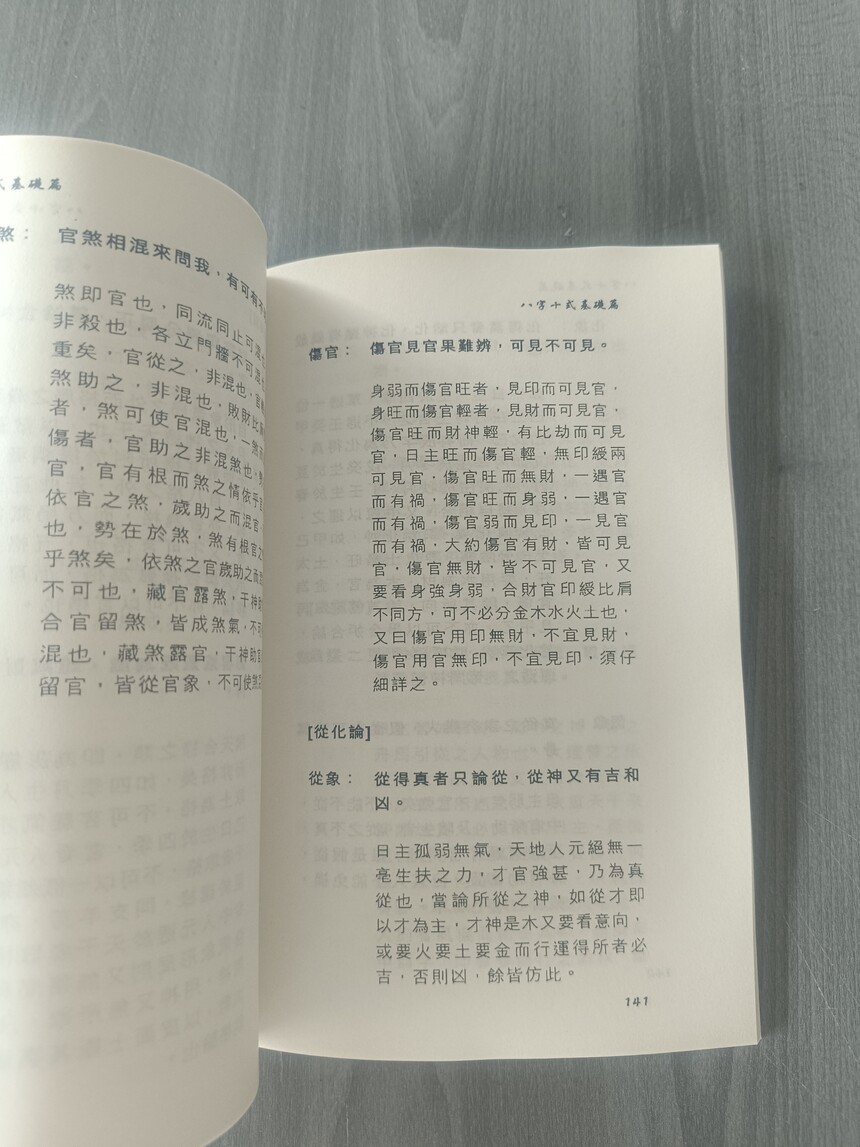 式基礎篇
煞： 官煞相混來問我，有可有不
煞即官也，同流同止可混也
非殺也，各立門牆不可混也
重矣，官從之，非混也，官輕
煞助之，非混也，敗財比肩
者，煞可使官混也，一煞而
傷者，官助之非混煞也，
官，官有根而煞之情依乎官
依官之煞，歲助之而混官
也，勢在於煞，煞有根官之
乎煞矣，依煞之官歲助之而
不可也，藏官露煞，干神
合官留煞，皆成煞氣，不可
混也，藏煞露官，干神助官
留官，皆從官象，不可使煞
八字十式基礎篇
傷官： 傷官見官果難辨，可見不可見。
身弱而傷官旺者，見印而可見官，
身旺而傷官輕者，見財而可見官，
傷官旺而財神輕，有比劫而可見
官，日主旺而傷官輕，無印綬兩
可見官，傷官旺而無財，一遇官
而有禍，傷官旺而身弱，一遇官
而有禍，傷官弱而見印，一見官
而有禍，大約傷官有財，皆可見
官，傷官無財，皆不可見官，又
要看身強身弱，合財官印綬比肩
不同方，可不必分金木水火土也，
又曰傷官用印無財，不宜見財，
傷官用官無印，不宜見印，須仔
細詳之。
[從化論]
從象： 從得真者只論從，從神又有吉和
凶。
日主孤弱無氣，天地人元絕無一
亳生扶之力，才官強甚，乃為真
從也，當論所從之神，如從才即
以才為主，才神是木又要看意向，
或要火要土要金而行運得所者必
吉，否則凶，餘皆仿此。
141